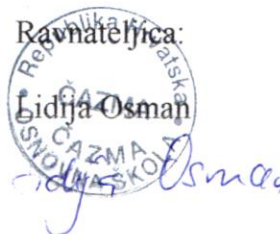 Ravnateljica:
Lidija Osman
Republika Hrvatska
ČAZMA
OSNOVNA ŠKOLA
ČAZMA
Lidija Osman